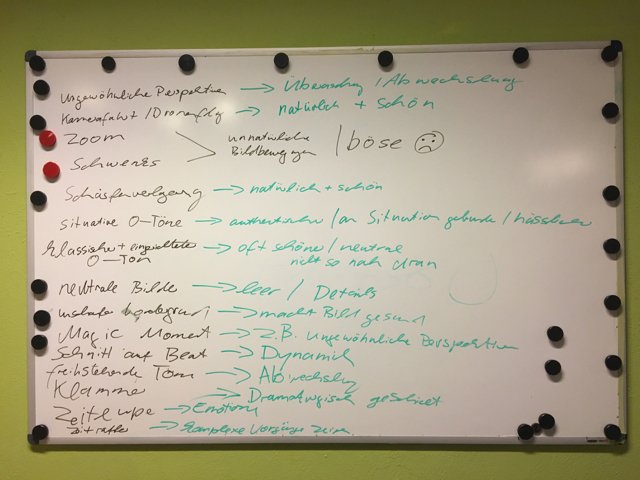 Ungewöhnliche Perspektiven → Überraschung / Abwechslung
Kamerafahrt / Dronenflug → natürlich + schön
Zoom
Schwenks
unnatürliche
Bildbewegungen / böse
Schärfenverlagerung → natürlich + schön
situative O-Töne → authentischer / an Situation gebunden /
klassischer + eingerichteter → oft schöner / neutral
O-Ton nicht so nah dran
neutrale Bilder → leer / Details
unscharfer → macht Bild gesund
Magic Moment → z.B. ungewöhnliche Perspektiven
Schnitt auf Beat → Dynamik
freihstehende Töne → Abwechslung
Klammer → Dramaturgisch
Zeitlupe → Emotion
Zeitraffer → Komplexe Vorgänge zeigen